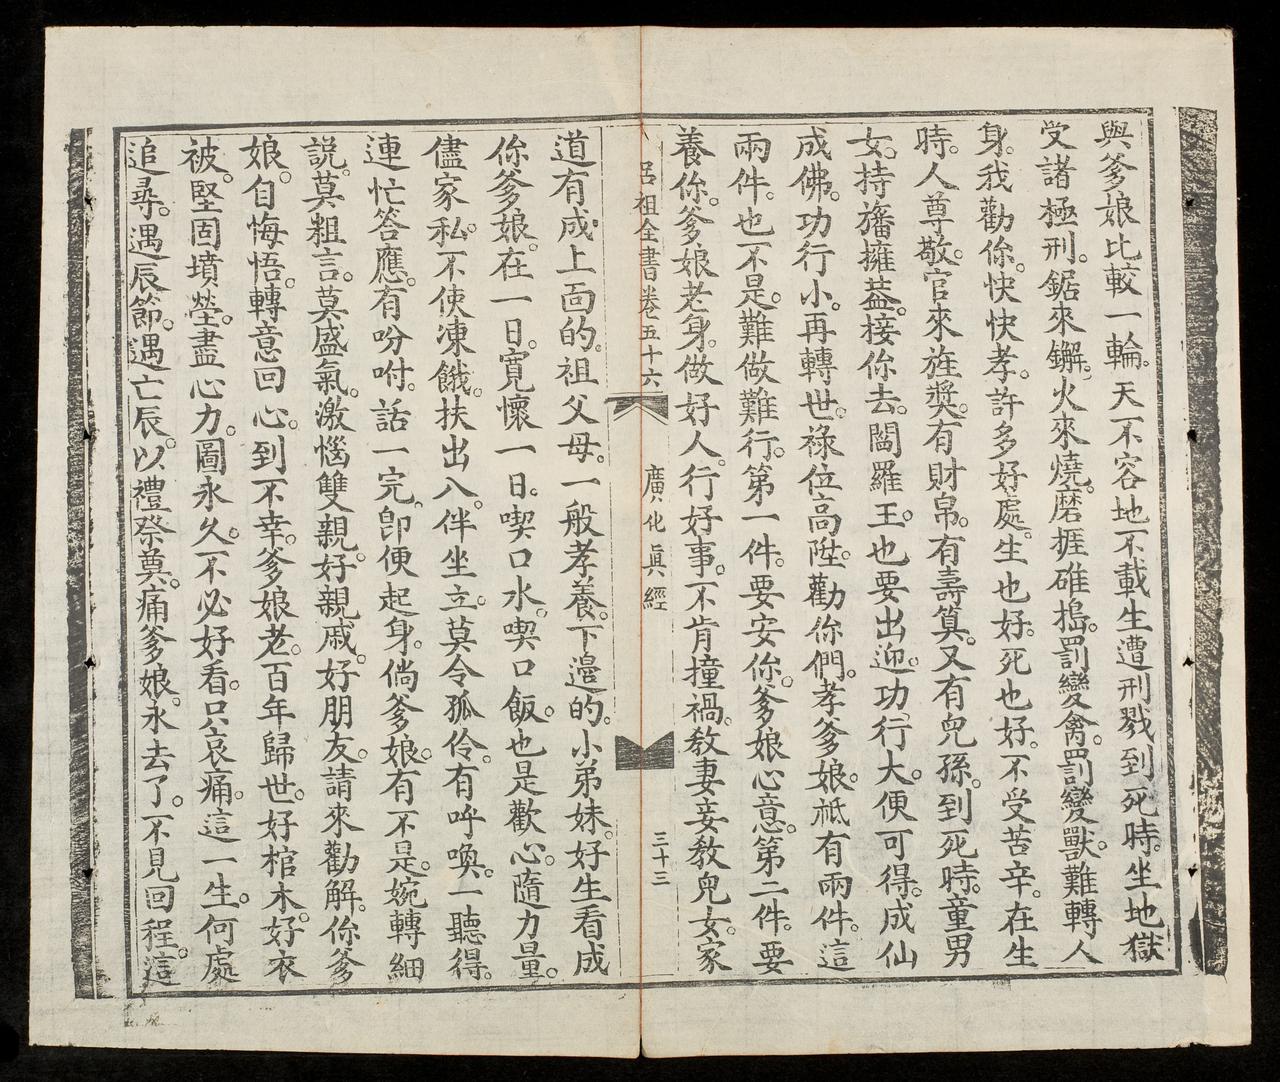 與爹娘比較一輪。天不容地不載生遭刑戮到死時。坐地獄
受諸極刑。鋸來鐁。火來燒。磨捱碓搗。罰變禽。罰變獸。難轉人
身。我勸你。快快孝。許多好處。生也好。死也好。不受苦辛。在生
時。人尊敬。官來旌獎。有財帛。有壽算。又有兒孫。到死時。童男
女。持旛擁葢。接你去。閻羅王。也要出迎。功行大。便可得。成仙
成佛。功行小。再轉世。祿位高陞。勸你們。孝爹娘。祗有兩件。這
兩件。也不是。難做難行。第一件。要安你。爹娘心意。第二件。要
養你。爹娘老身。做好人。行好事。不肯撞禍。教妻妾教兒女。家
呂祖全書卷五十六
廣化真經
三十三
道有成。上面的。祖父母。一般孝養。下邊的。小弟妹。好生看成
你爹娘。在一日。寬懷一日。喫口水。喫口飯。也是歡心。隨力量。
儘家私。不使凍餓。扶出入。伴坐立。莫令孤伶。有呼喚。一聽得。
連忙答應。有吩咐。話一完。卽便起身。倘爹娘。有不是。婉轉細
說。莫粗言。莫盛氣。激惱雙親。好親戚。好朋友。請來勸解。你爹
娘。自悔悟。轉意回心。到不幸。爹娘老。百年歸世。好棺木。好衣
被。堅固墳塋。盡心力。圖永久。不必好看。只哀痛。這一生。何處
追尋。遇辰節。遇亡辰。以禮祭奠。痛爹娘。永去了。不見回程。這